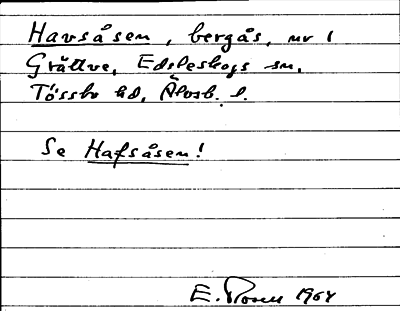 Havsåsen, bergås, nr 1
Gråttve, Edsleskogs sn,
Tössbo hd, Älvsb. l.
Se Hafsåsen!
E. Rosen 1964